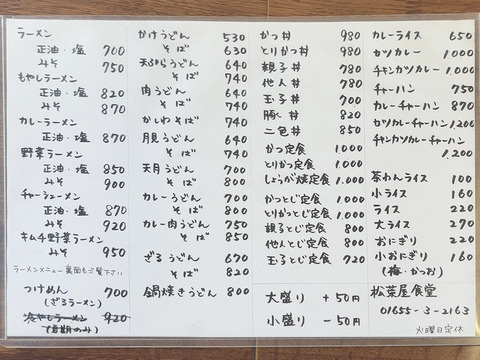 ラーメン
正油・塩 700
みそ 750
もやしラーメン
正油・塩 820
みそ 870
カレーラーメン
正油・塩 870
野菜ラーメン
正油・塩 850
みそ 900
チャーシューメン
正油・塩 870
みそ 920
キムチ野菜ラーメン
みそ 950
ラーメンメニュー裏面もご覧下さい
つけめん 700
(ざるラーメン)
冷やしラーメン 920
(夏期のみ)
かけうどん 530
そば 630
天ぷらうどん 640
そば 740
肉うどん 640
そば 740
かしわそば 740
月見うどん 640
そば 740
天月うどん 700
そば 800
カレーうどん 700
そば 800
カレー肉うどん 750
そば 850
ざるうどん 670
そば 820
鍋焼きうどん 800
かつ丼 980
とりかつ丼 980
親子丼 780
他人丼 780
玉子丼 700
豚丼 820
二色丼 850
かつ定食 1,000
とりかつ定食 1,000
しょうが焼定食 1,000
かつとじ定食 1,000
とりかつとじ定食 1,000
親子とじ定食 800
他人とじ定食 800
玉子とじ定食 720
大盛り +50円
小盛り -50円
カレーライス 650
カツカレー 1,000
チキンカツカレー 1,000
チャーハン 750
カレーチャーハン 870
カツカレーチャーハン 1,200
チキンカツカレーチャーハン
1,200
茶わんライス 100
小ライス 160
ライス 220
大ライス 270
おにぎり 220
小おにぎり 160
(梅・かつお)
松葉屋食堂
01655-3-2163
火曜日定休